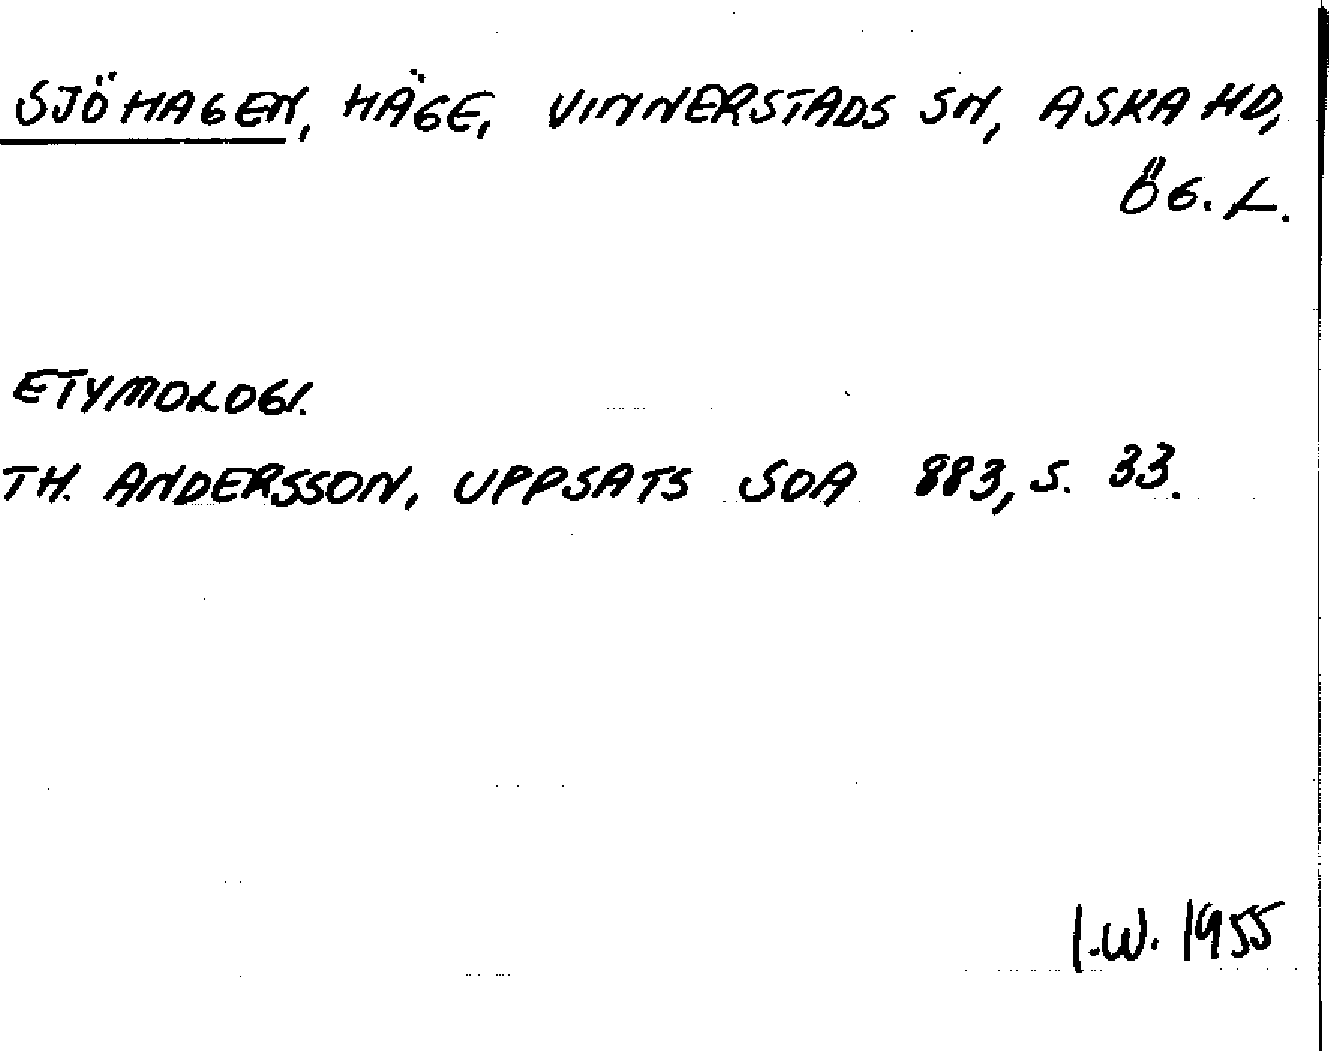 SJÖHAGEN, HÄGE, VINNERSTADS SN, ASKA HD,
ÖG. L.
ETYMOLOGI.
TH. ANDERSSON, UPPSATS SOA 883, S. 33.
I.W. 1955